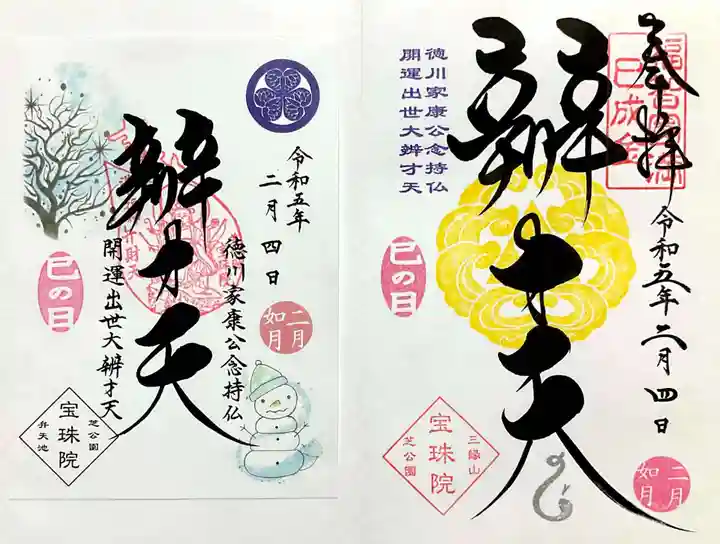 奉拝
巳成金
辨才天
徳川家康公念持仏
開運出世大辨才天
令和五年二月四日
巳の日
二月
如月
三縁山
宝珠院
芝公園
令和五年
二月四日
辨才天
徳川家康公念持仏
開運出世大辨才天
巳の日
二月
如月
芝公園
宝珠院
弁天池